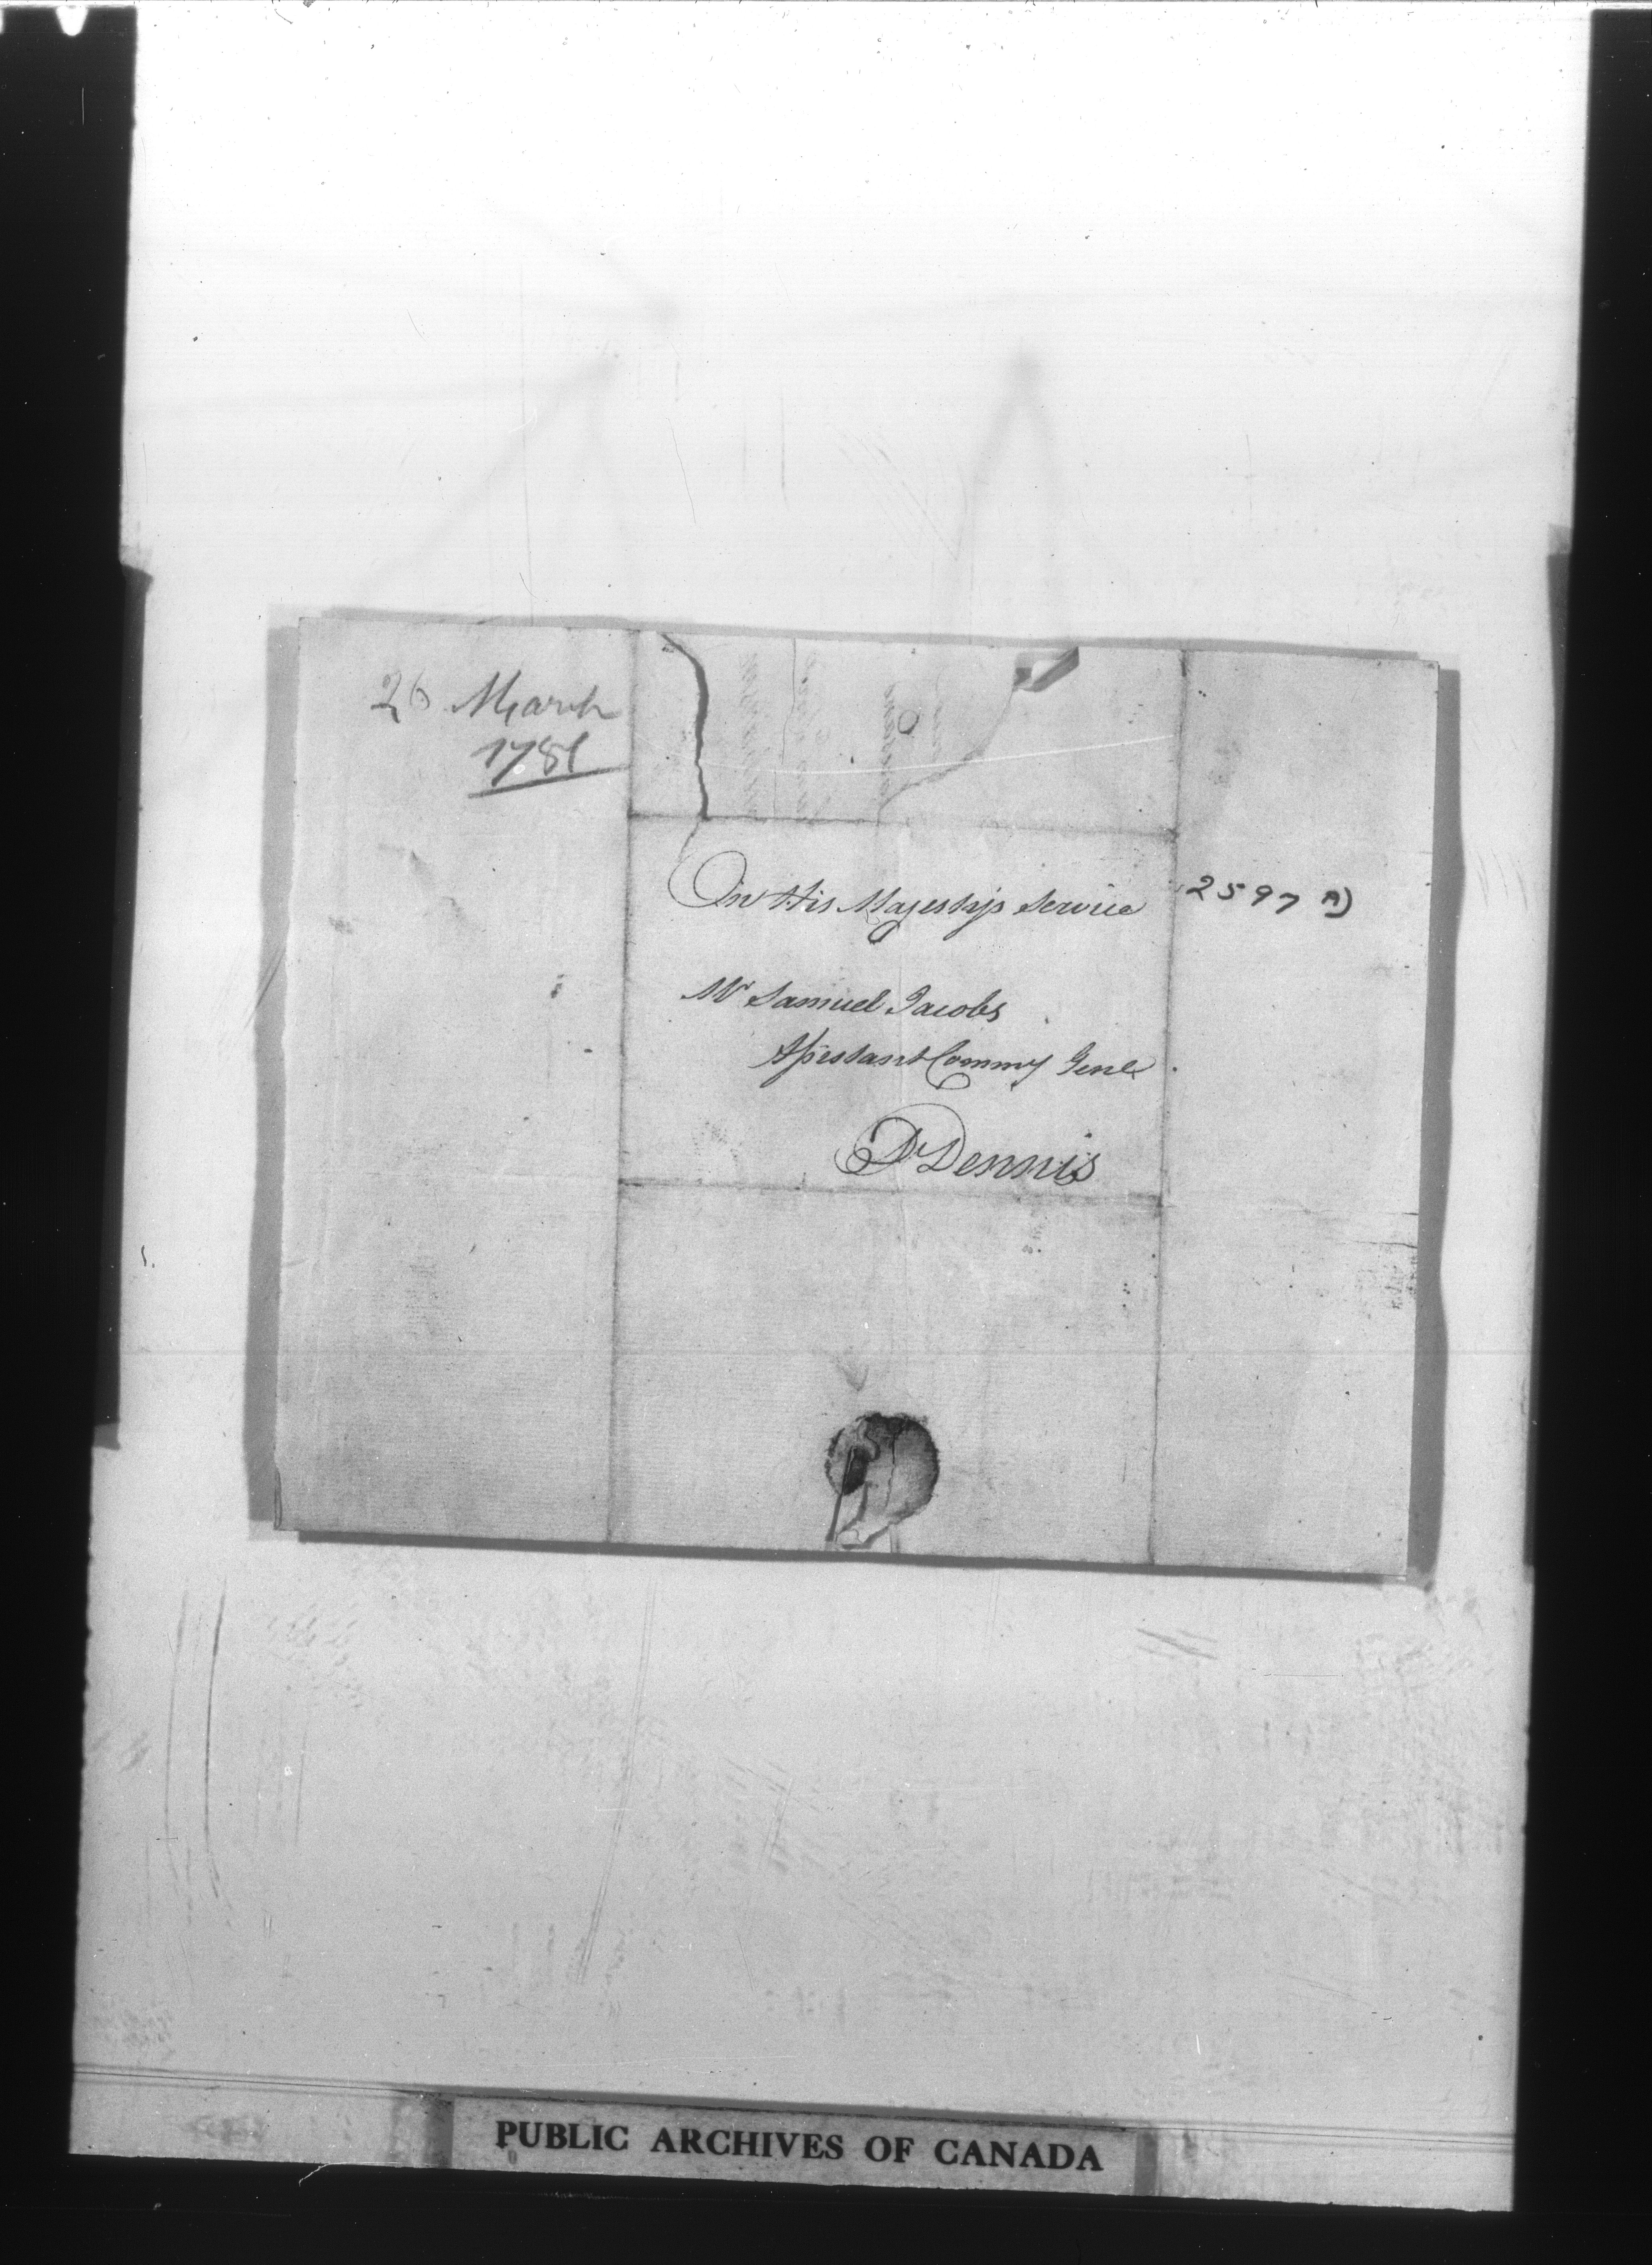 26 March
1781
On His Majestys Service
2597 A)
Mr Samuel Jacobs
Assistant Commy Genl
St Dennis
PUBLIC ARCHIVES OF CANADA